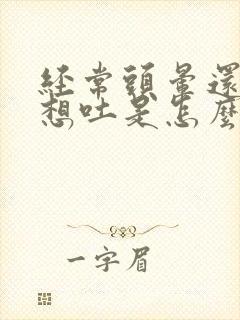 經常頭暈還
想吐是怎麼
一字眉